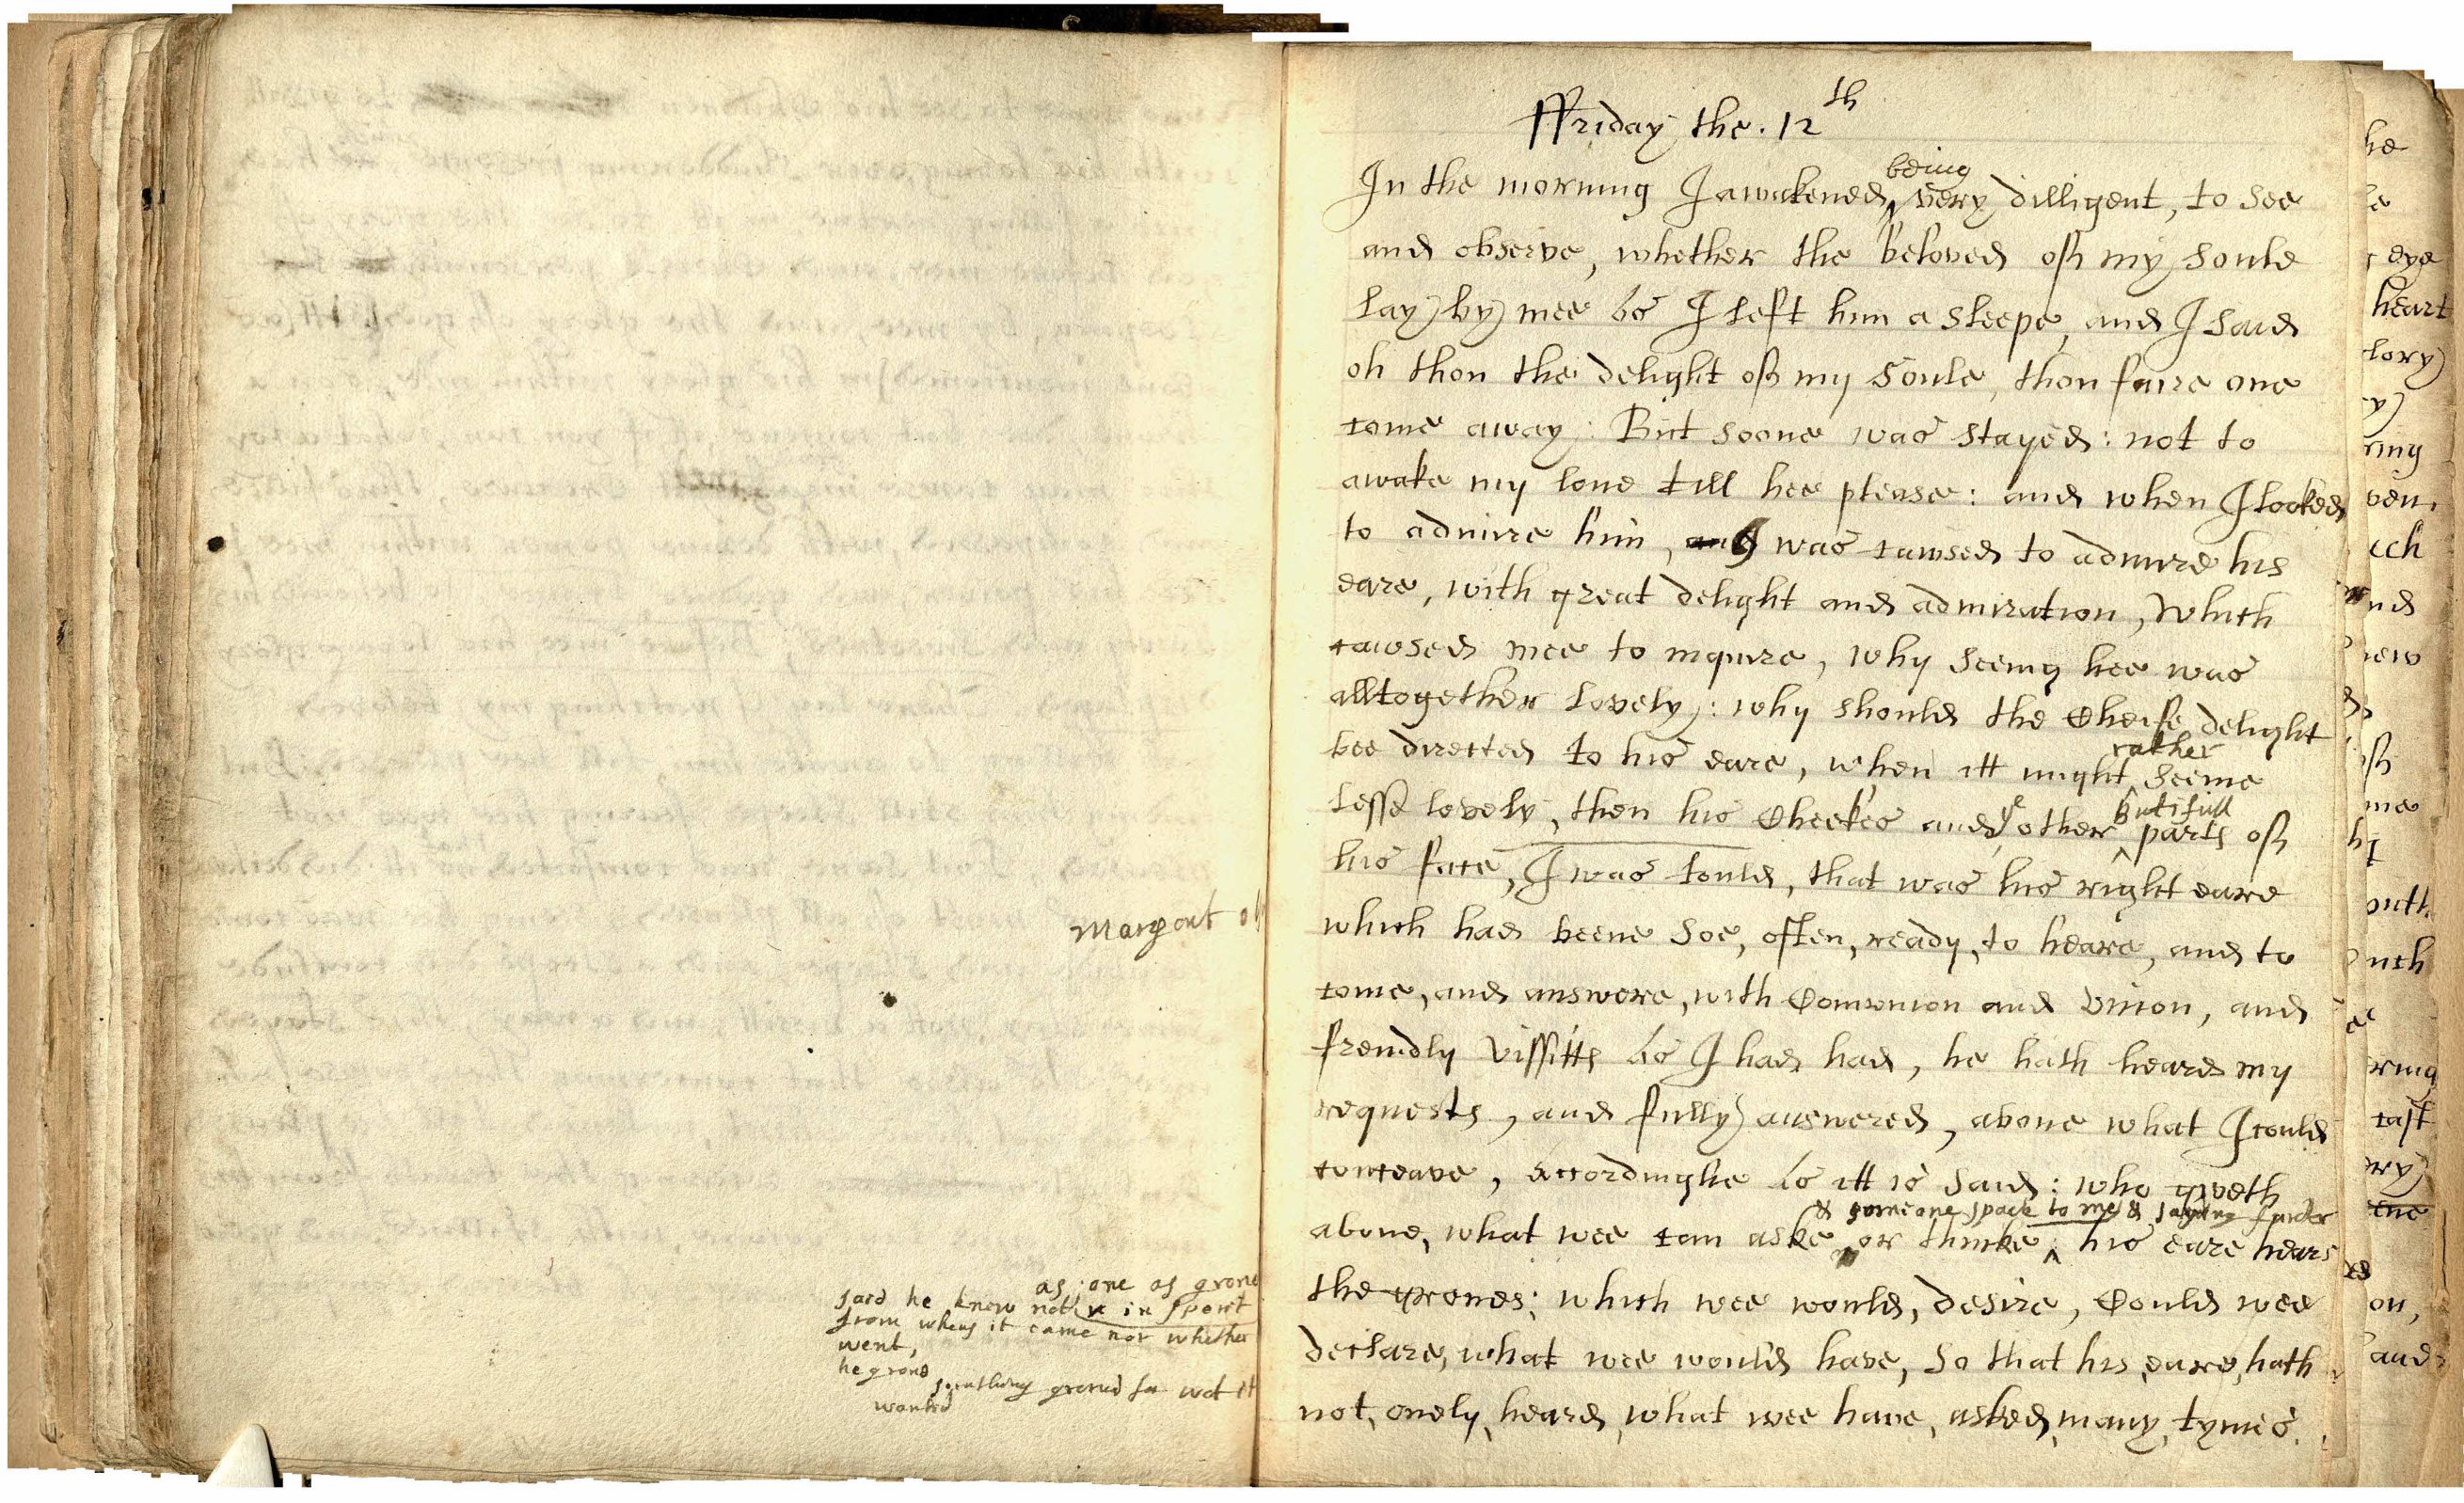 Margout
as one as grone
said he knew nott in spent
from whens it came nor whether
went,
he grone
somthing groned for wat it
wanted
ffriday the. 12th
being
In the morning I awakened very dilligent, to see
and observe, whether the beloved off my soule
lay by mee as I left him a sleepe, and I said
oh thou the delight off my soule, thou faire one
come away: But soone was stayed: not to
awake my loue till hee please: and when I looked
to admire him, I was cawsed to admire his
eare, with great delight and admiration, which
cawsed mee to inquire, why seeing hee was
alltogether lovely: why should the Cheife delight
rather
bee directed to his eare, when itt might seeme
butifull
lesse lovely, then his Cheekes and ye other parts off
his face, I was tould, that was his right eare
which had beene soe, often, ready, to heare, and to
come, and answere, with Comunion and Vnion, and
freindly vissitts as I had had, he hath heard my
requests, and fully answered, aboue what I could
conceave, accordinglie as itt is said: who giveth
& someone spack to me & saying furder
aboue, what wee can aske or thinke, his eare hears
the grones; which wee would, desire, Could wee
declare, what wee would have, so that his, eare, hath
not, onely, heard, what wee haue, asked, many, tymes.
he
le
r eye
heart
lory
ey
ring
ven,
ach
nd
new
off
me
outh
uch
e
ring
cast
ery
ene
on,
and